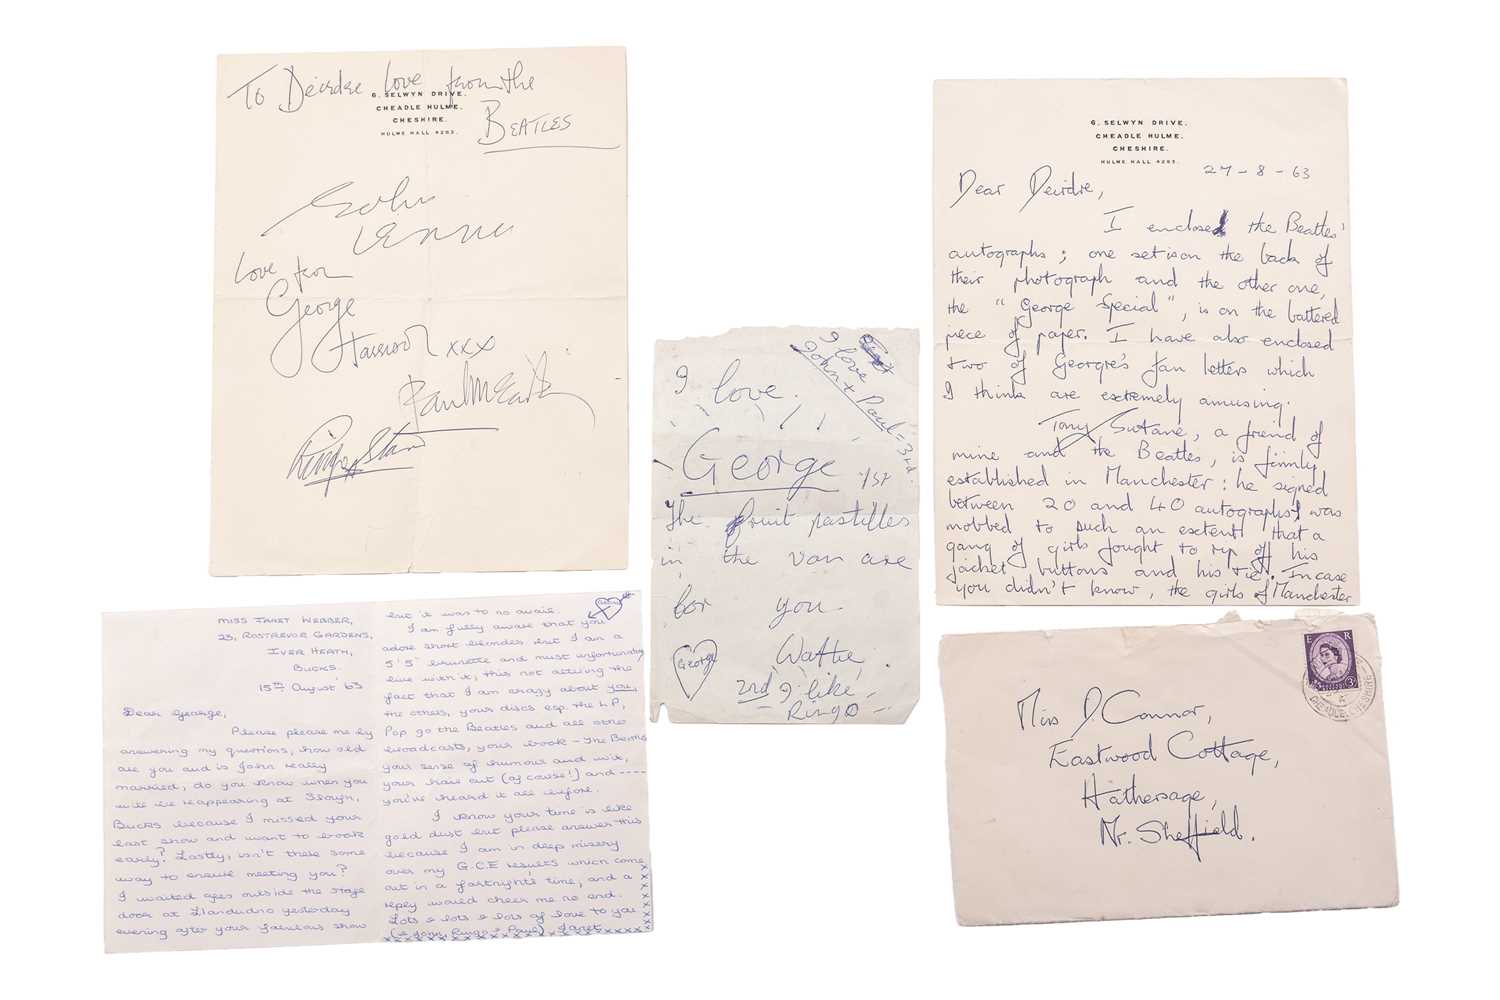 To Deirdre love from the
6. SELWYN DRIVE.
CHEADLE HULME.
CHESHIRE.
HULME HALL 4283.
BEATLES
John
Lennon
love from
George
Harrison xxx
Paul McCartney
Ringo Starr
6. SELWYN DRIVE.
CHEADLE HULME.
CHESHIRE.
HULME HALL 4283.
27-8-63
Dear Deirdre,
I enclose the Beatles'
autographs; one set is on the back of
their photograph and the other one,
the "George Special", is on the battered
piece of paper. I have also enclosed
two of George's fan letters which
I think are extremely amusing.
Tony Sutane, a friend of
mine and the Beatles, is firmly
established in Manchester: he signed
between 20 and 40 autographs, was
mobbed to such an extent that a
gang of girls fought to rip off his
jacket buttons and his tie. In case
you didn't know, the girls of Manchester
I love
John + Paul = 3rd.
I love
George 1st
The fruit pastilles
in the van are
for you.
George
Wattie
2nd I like
Ringo
MISS JANET WEBBER,
23, ROSTREVOR GARDENS,
IVER HEATH,
BUCKS.
15th August '63
Dear George,
Please please me by
answering my questions, how old
are you and is John really
married, do you know when you
will be reappearing at Slough,
Bucks because I missed your
last show and want to book
early? Lastly, isn't there some
way to ensure meeting you?
I waited ages outside the stage
door at Llandudno yesterday
evening after your fabulous show
but it was to no avail.
I am fully aware that you
adore short blondes but I am a
5'5" brunette and must unfortunately
live with it, this not altering the
fact that I am crazy about you,
the others, your discs esp. the L.P,
Pop go the Beatles and all other
broadcasts, your book - The Beatles
your sense of humour and wit,
your hair cut (of course!) and ----
you've heard it all before.
I know your time is like
gold dust but please answer this
because I am in deep misery
over my G.C.E results which come
out in a fortnight's time, and a
reply would cheer me no end.
Lots & lots & lots of love to you
(& John, Ringo & Paul), Janet
E R
3D
Miss D. Connor,
Eastwood Cottage,
Hathersage,
Nr. Sheffield.